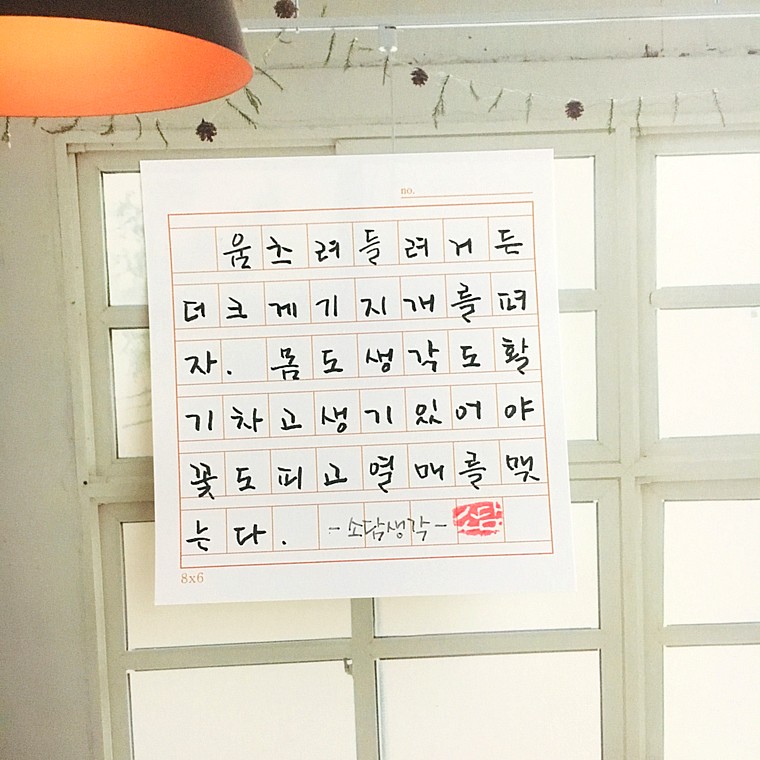 no.
움츠려들려거든
더크게기지개를펴
자. 몸도생각도활
기차고생기있어야
꽃도피고열매를맺
는다. -소담생각- 소담
8x6